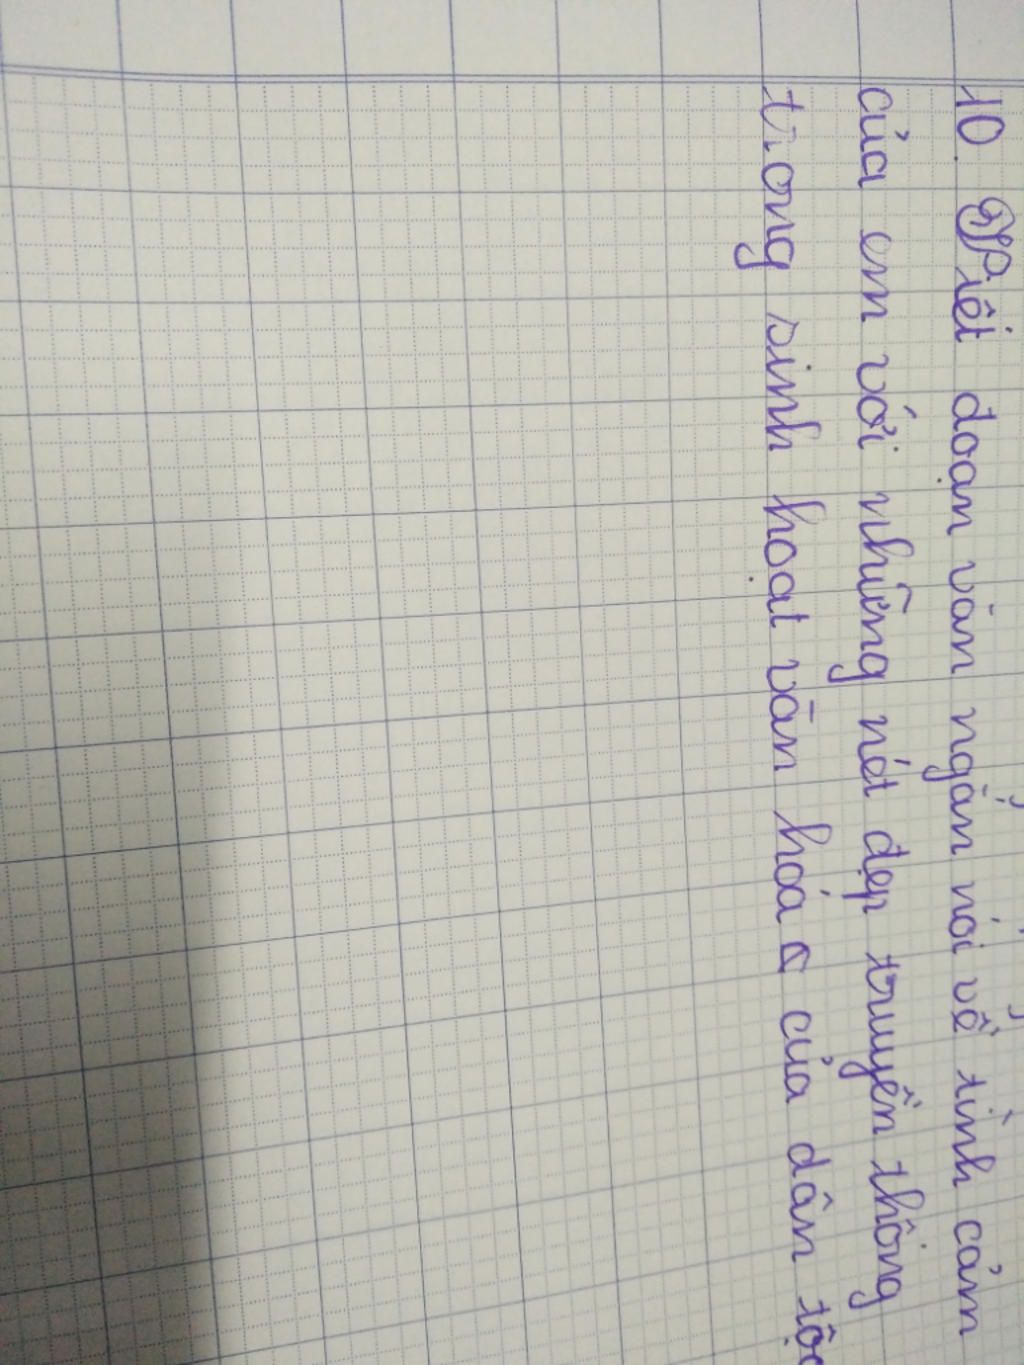 10. Viết đoạn văn ngắn nói về tình cảm
của em với những nét đẹp truyền thống
trong sinh hoạt văn hoá c của dân tộc